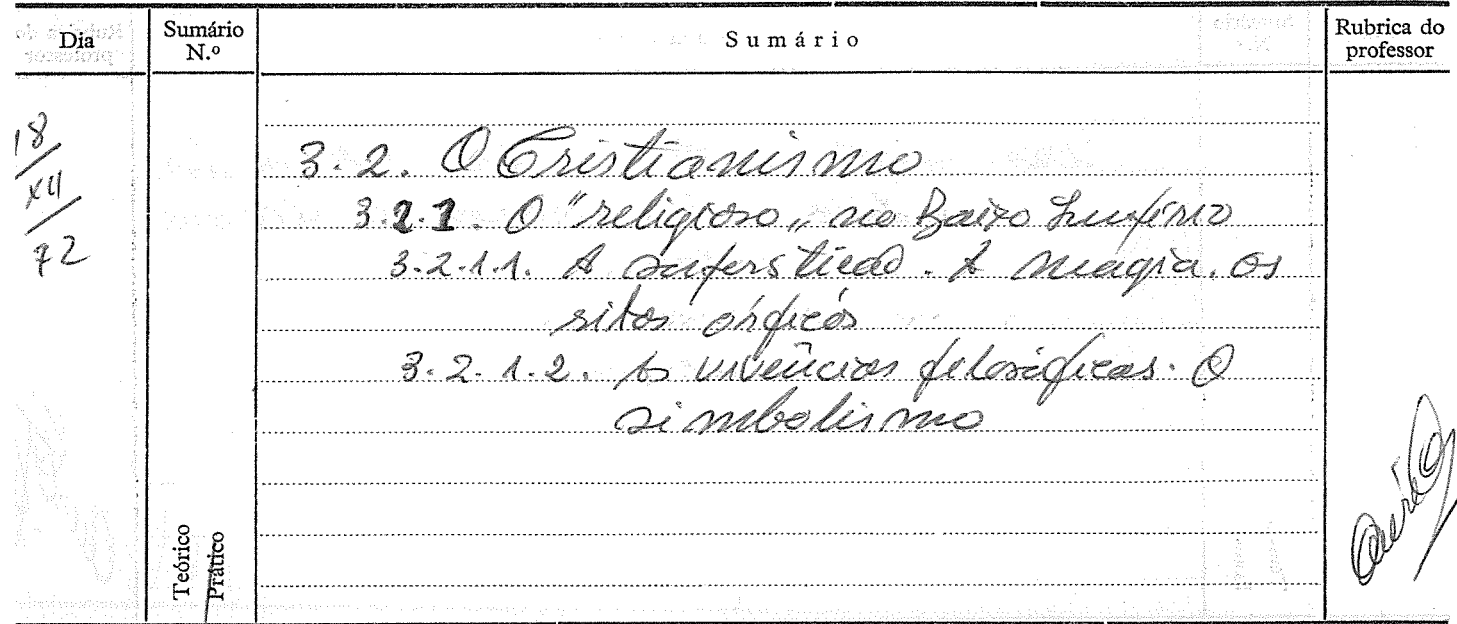 Dia
Sumário N.º
Sumário
Rubrica do professor
18/XII/72
3.2. O Cristianismo
3.2.1. O "religioso" no Baixo Império
3.2.1.1. A superstição. A magia. Os
ritos órficos
3.2.1.2. As vivências filosóficas. O
simbolismo
Teórico
Prático